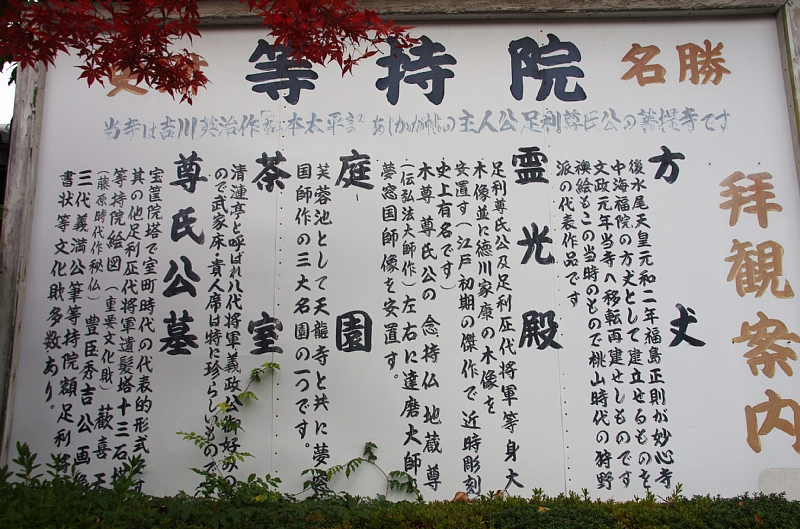 名勝
等持院
史
当寺は吉川英治作「私本太平記」あしかが帖の主人公足利尊氏公の菩提寺です
拝観案内
方丈
後水尾天皇元和二年福島正則が妙心寺
中海福院の方丈として建立せるものを
文政元年当寺へ移転再建せしものです
襖絵もこの当時のもので桃山時代の狩野
派の代表作品です
霊光殿
足利尊氏公及足利歴代将軍等身大
木像並に徳川家康の木像を
安置す(江戸初期の傑作で近時彫刻
史上有名です)
本尊尊氏公の念持仏地蔵尊
(伝弘法大師作)左右に達磨大師
夢窓国師像を安置す。
庭園
芙蓉池として天龍寺と共に夢窓
国師作の三大名園の一つです。
茶室
清漣亭と呼ばれ八代将軍義政公御好みの
ので武家床・貴人席は特に珍らしいもので
尊氏公墓
宝筐院塔で室町時代の代表的形式す
其の他足利歴代将軍遺髪塔十三石塔
等持院絵図(重要文化財)歓喜天
(藤原時代作秘仏)豊臣秀吉公画像
三代義満公筆等持院額足利将
書状等文化財多数あり。